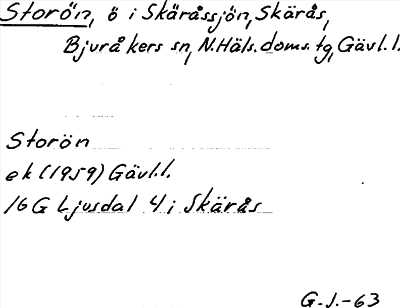 Storön, ö i Skäråssjön, Skärås,
Bjuråkers sn, N.Häls. doms. tg, Gävl.l.
Storön
ek (1959) Gävl.l.
16G Ljusdal 4 i Skärås
G.J.-63